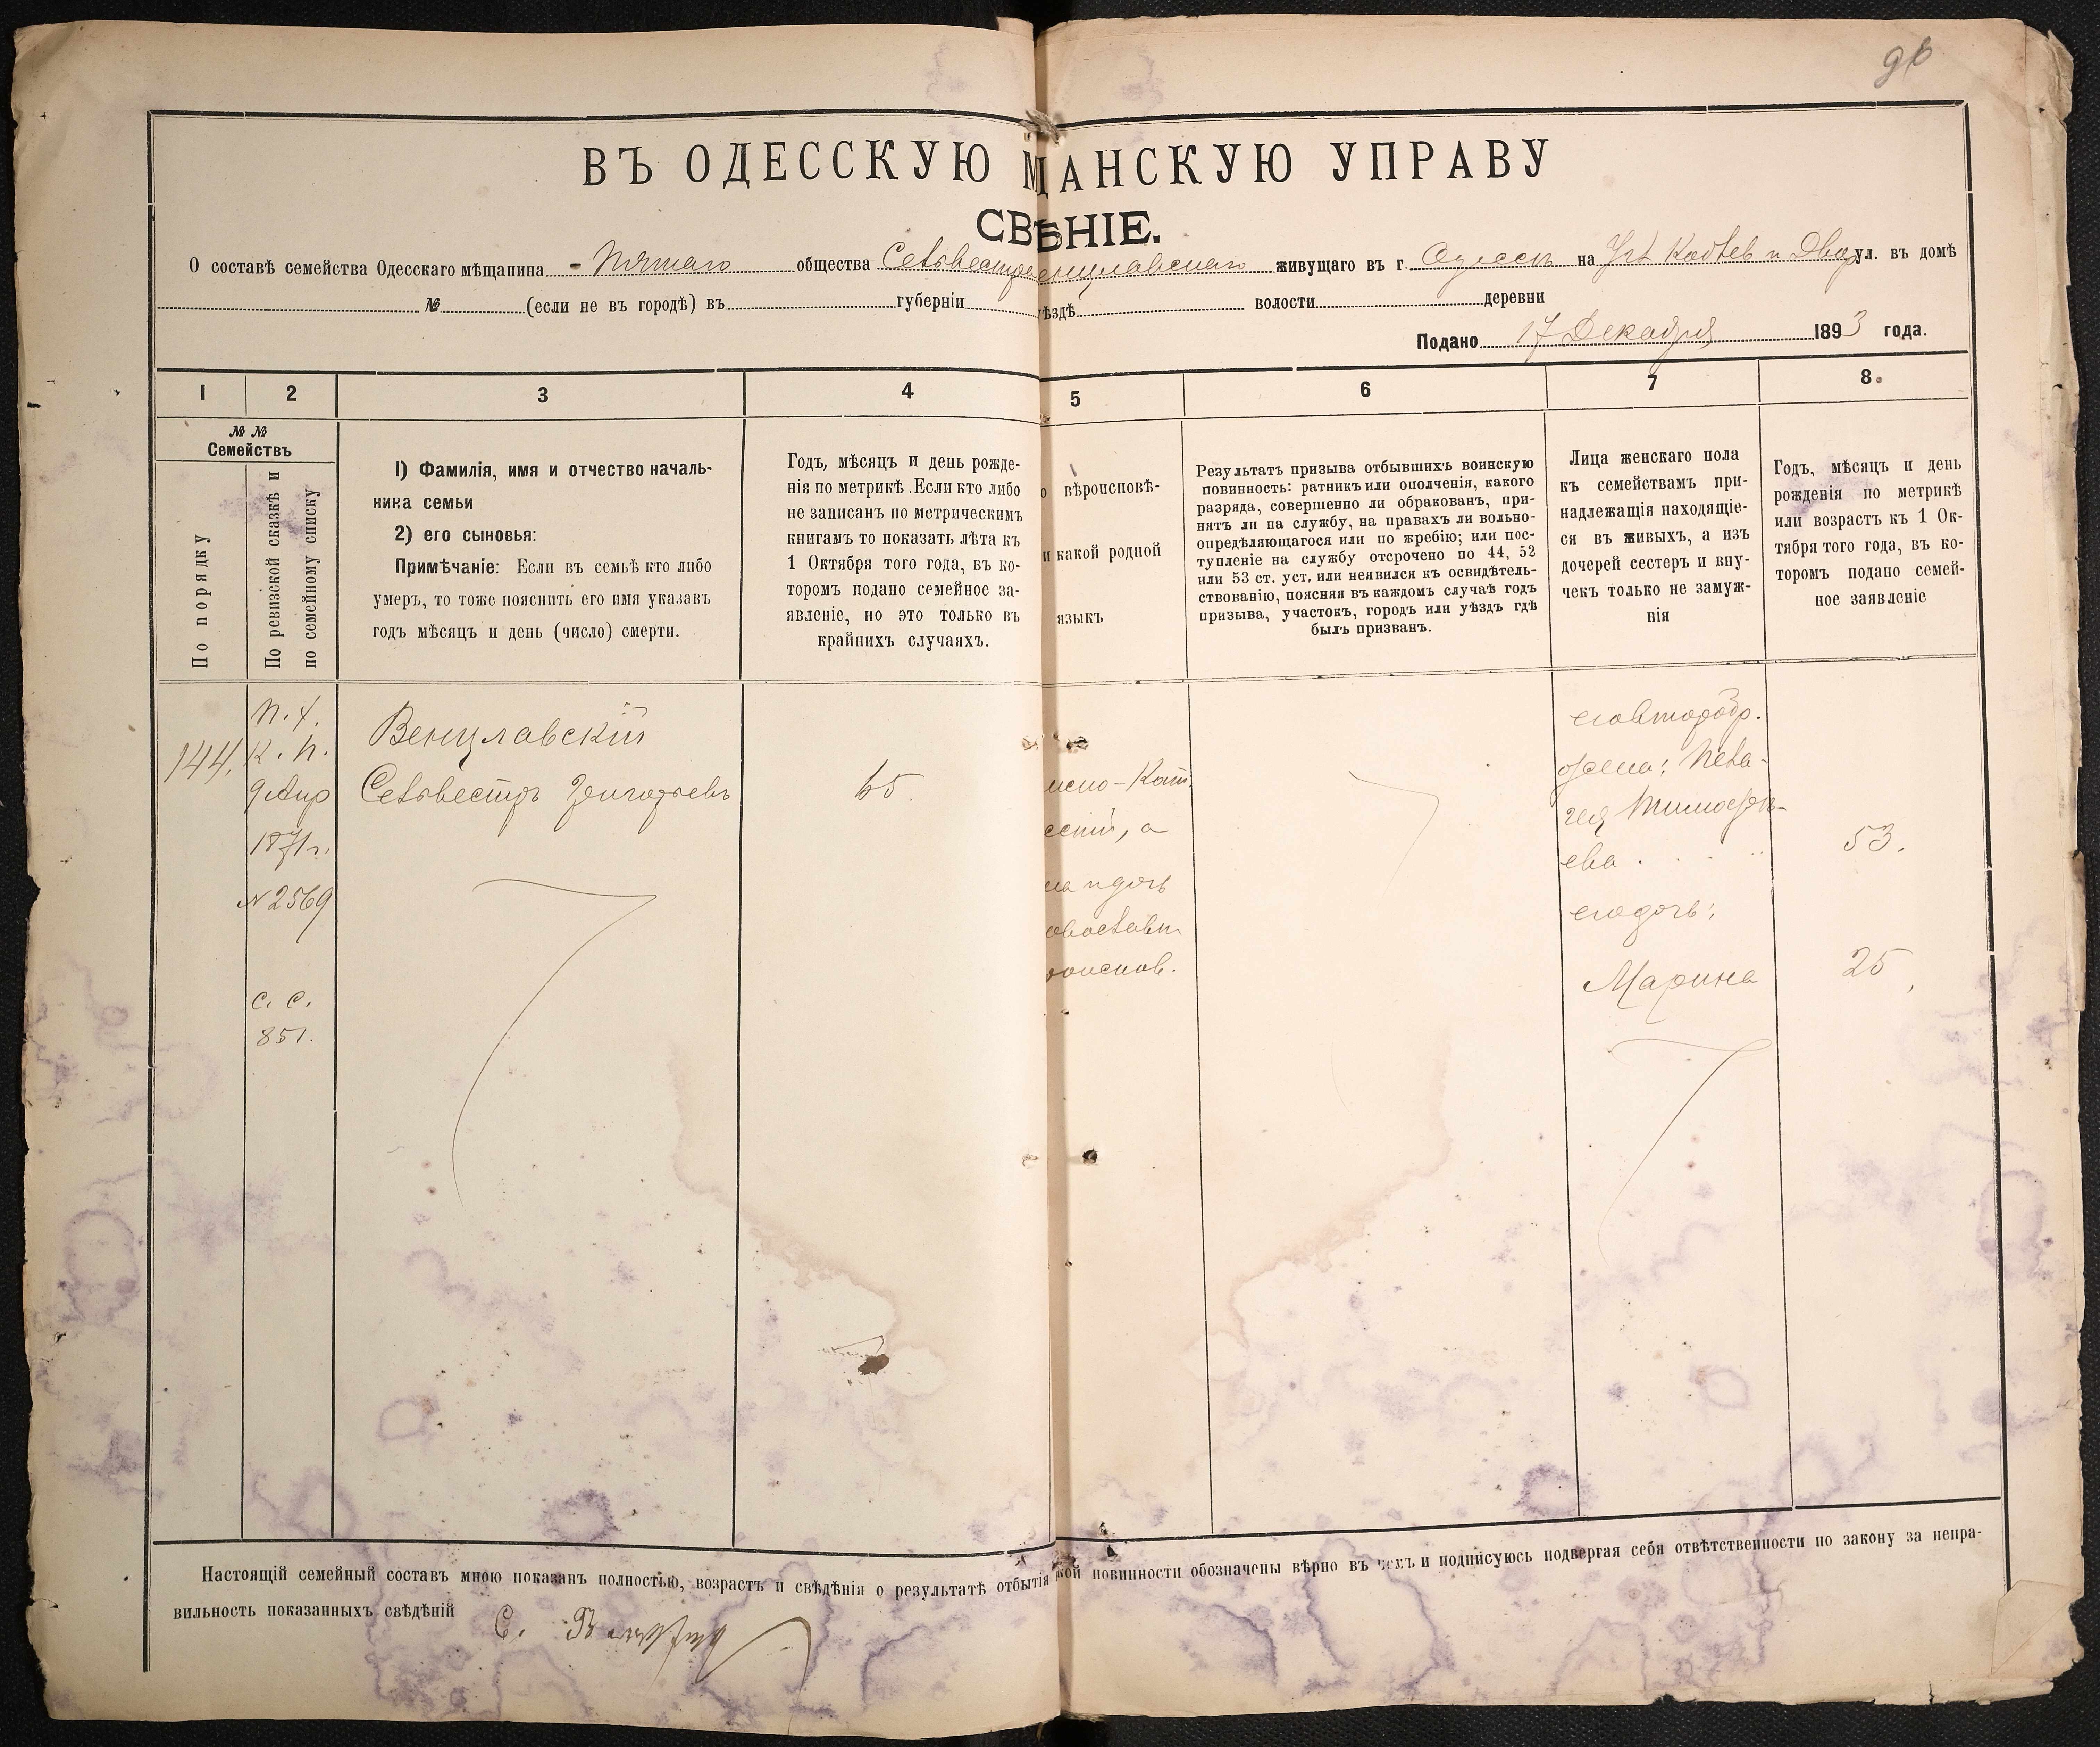 96
ВЪ ОДЕССКУЮ МЩАНСКУЮ УПРАВУ
СВѢНІЕ.
О составѣ семейства Одесскаго мѣщанина Пятаго общества живущаго въ г. Одессѣ на ул. въ домѣ
№ (если не въ городѣ) въ губерніи уѣздѣ волости деревни
Подано 17 Декабря 1893 года.
1 2 3 4 5 6 7 8.
№ №
Семействъ
По порядку
По ревизской сказкѣ и
по семейному списку
1) Фамилія, имя и отчество началь-
ника семьи
2) его сыновья:
Примѣчаніе: Если въ семьѣ кто либо
умеръ, то тоже пояснить его имя указавъ
годъ мѣсяцъ и день (число) смерти.
Годъ, мѣсяцъ и день рожде-
нія по метрикѣ. Если кто либо
не записанъ по метрическимъ
книгамъ то показать лѣта къ
1 Октября того года, въ ко-
торомъ подано семейное за-
явленіе, но это только въ
крайнихъ случаяхъ.
о вѣроисповѣ-
и какой родной
языкъ
Результатъ призыва отбывшихъ воинскую
повинность: ратникъ или ополченія, какого
разряда, совершенно ли обракованъ, при-
нятъ ли на службу, на правахъ ли вольно-
опредѣляющагося или по жребію; или пос-
тупленіе на службу отсрочено по 44, 52
или 53 ст. уст. или неявился къ освидѣтель-
ствованію, поясняя въ каждомъ случаѣ годъ
призыва, участокъ, городъ или уѣздъ гдѣ
былъ призванъ.
Лица женскаго пола
къ семействамъ при-
надлежащія находящіе-
ся въ живыхъ, а изъ
дочерей сестеръ и вну-
чекъ только не замуж-
нія
Годъ, мѣсяцъ и день
рожденія по метрикѣ
или возрастъ къ 1 Ок-
тября того года, въ ко-
торомъ подано семей-
ное заявленіе
144.
К. П.
9 Апр
1871 г.
№ 2569
с. с.
851.
Венцлавскій
Сельвестръ Григорьевъ
65.
ско-Кат.
а
и дочь
его втораго бр.
жена; Пела-
гея Тимофѣ-
ева 53.
его дочь:
Марина 25
Настоящій семейный составъ мною показанъ полностью, возрастъ и свѣдѣнія о результатѣ отбытія кой повинности обозначены вѣрно въ чемъ и подписуюсь подвергая себя отвѣтственности по закону за непра-
вильность показанныхъ свѣдѣній С.